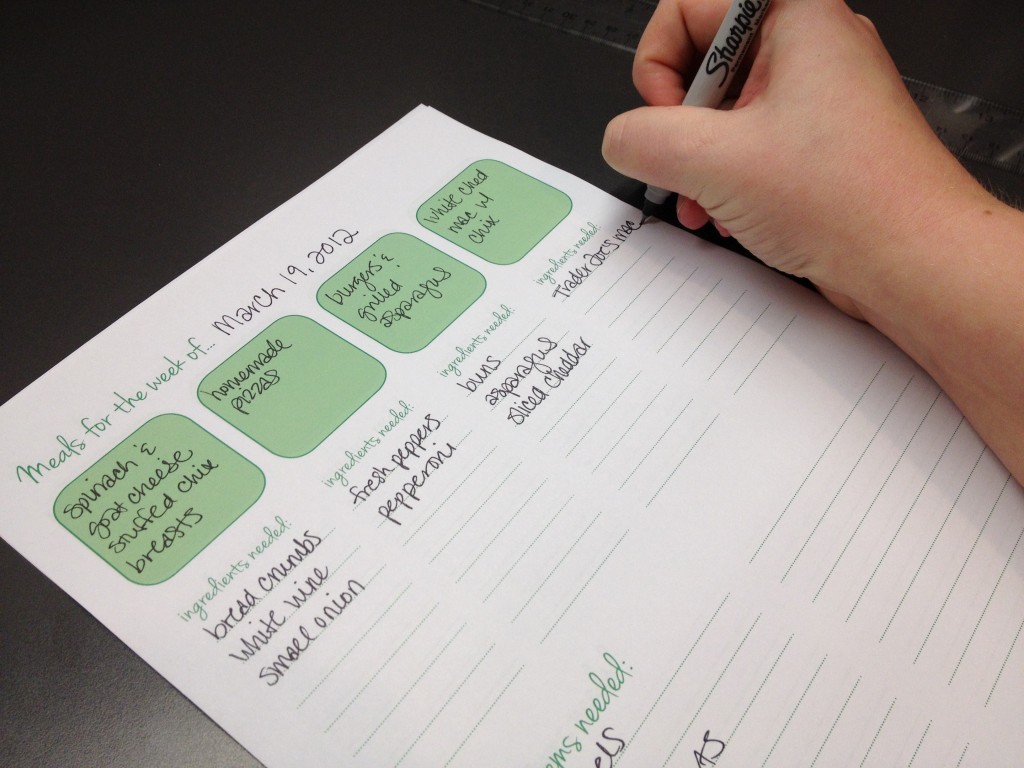 Meals for the week of... March 19, 2012
spinach &
goat cheese
stuffed chix
breasts
ingredients needed:
bread crumbs
white wine
small onion
homemade
pizzas
ingredients needed:
fresh peppers
pepperoni
burgers &
grilled
asparagus
ingredients needed:
buns
asparagus
sliced cheddar
white ched
mac w/
chix
ingredients needed:
Trader Joe's mac
Sharpie
needed: